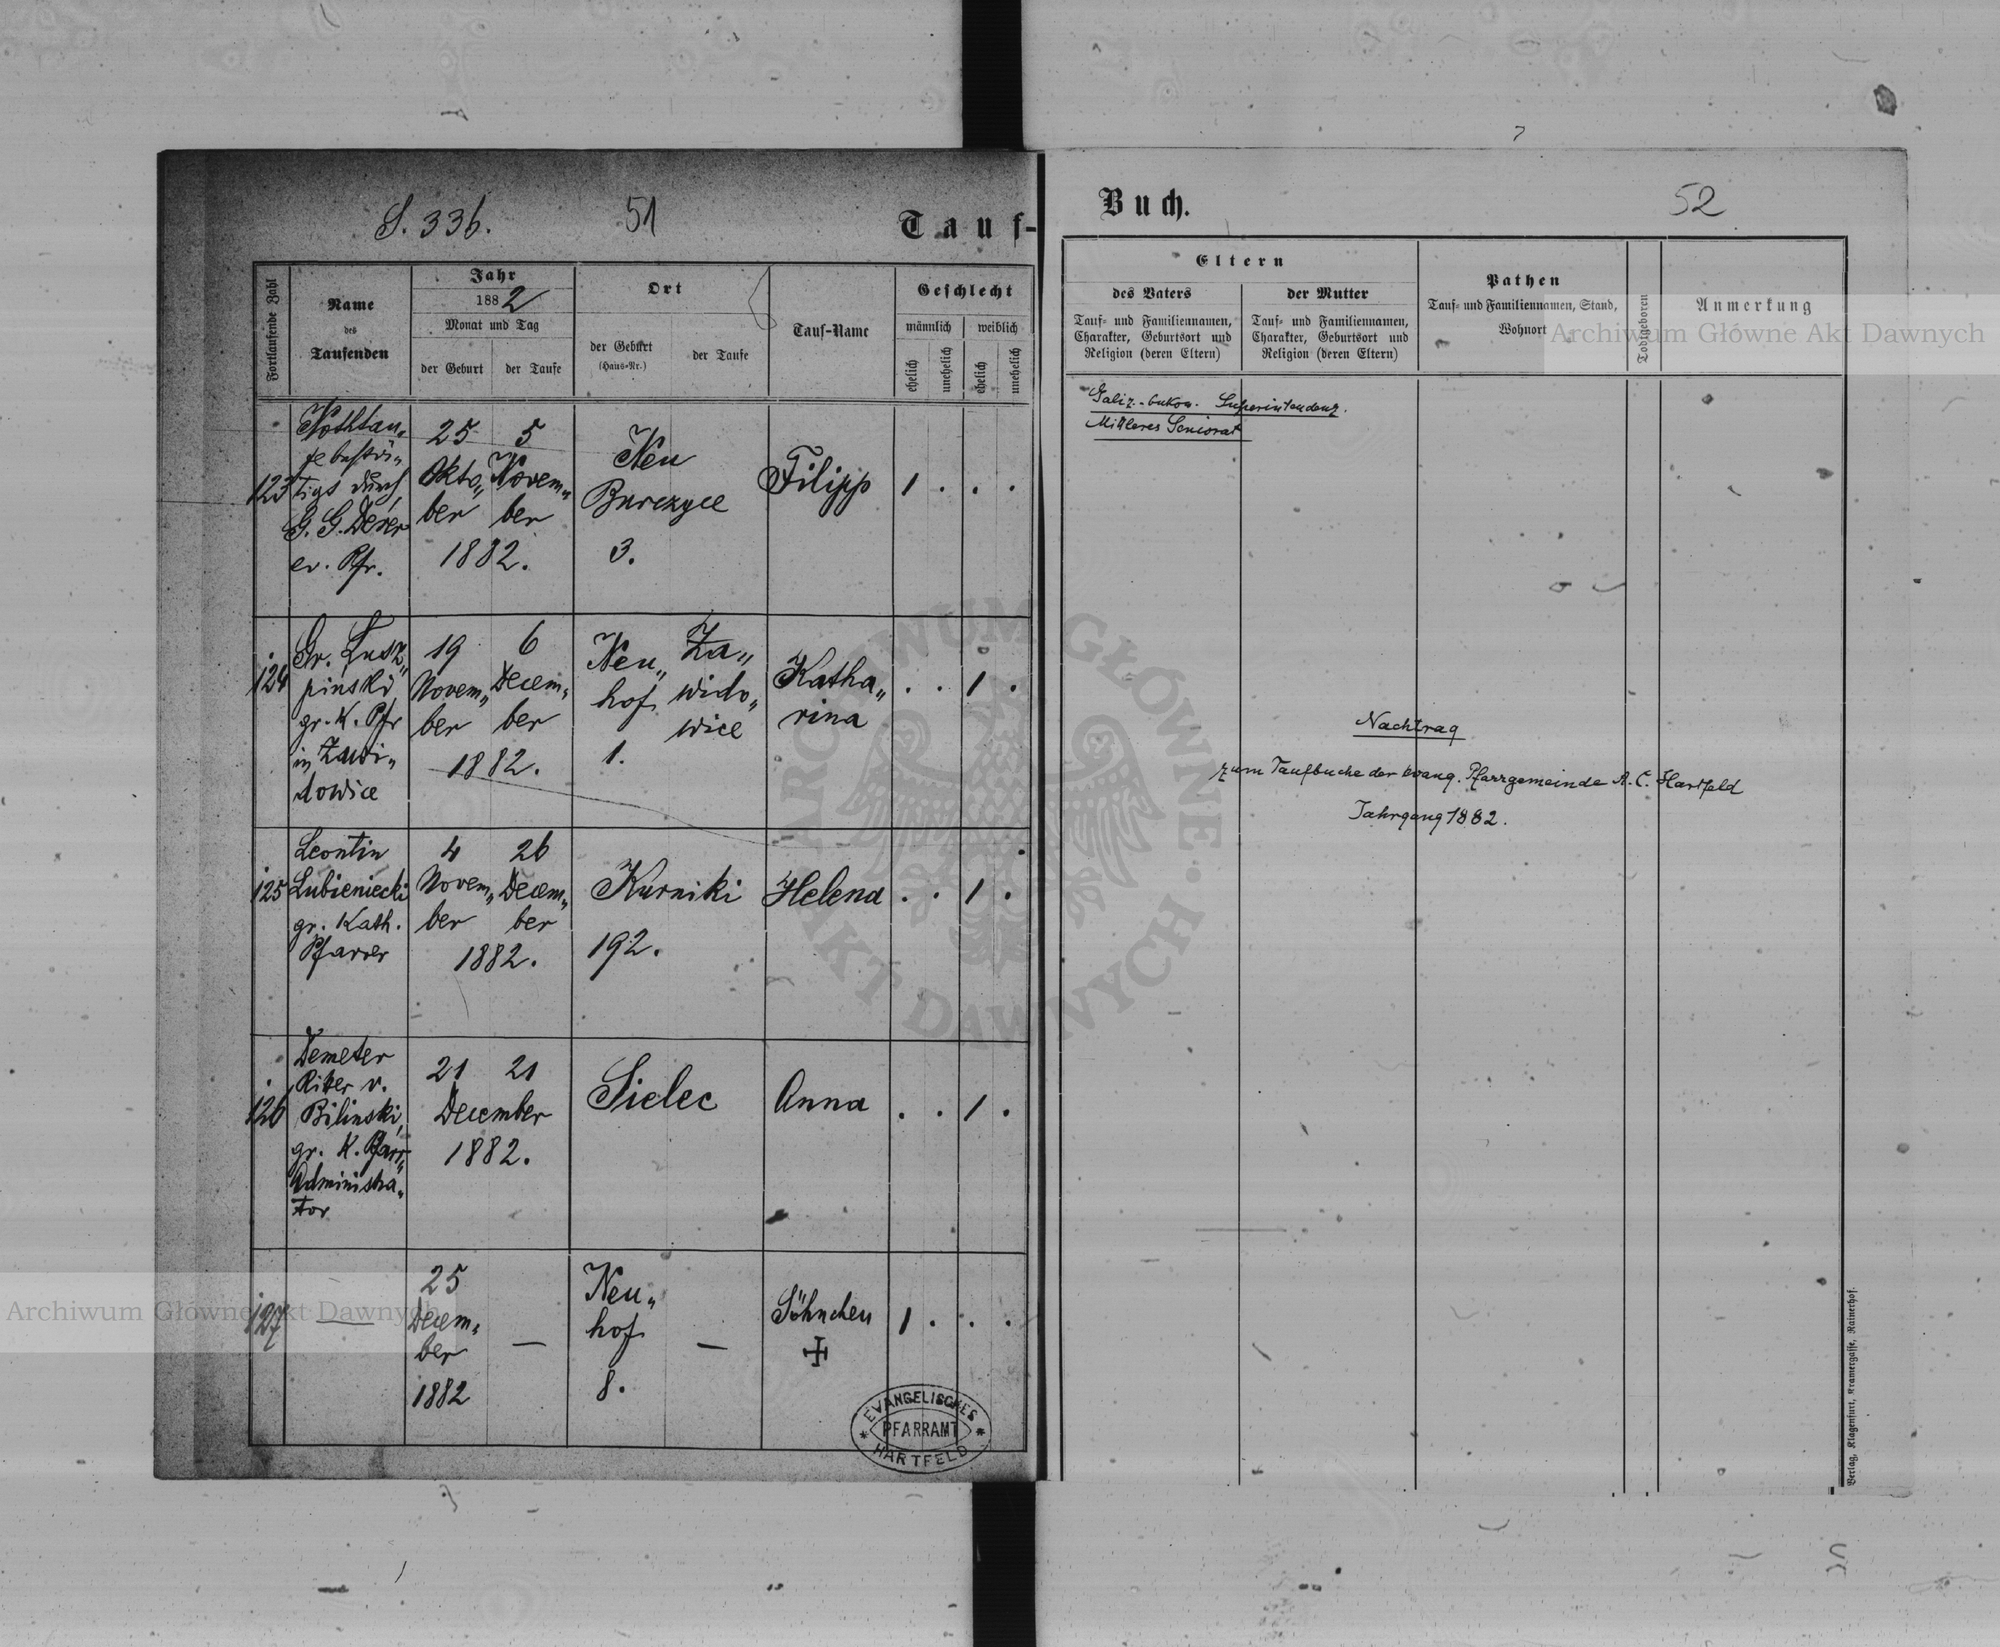 S. 336.
51
Tauf-
Fortlaufende Zahl
Name
des
Taufenden
Jahr
1882
Monat und Tag
der Geburt
der Taufe
Ort
der Geburt
(Haus-Nr.)
der Taufe
Tauf-Name
Geschlecht
männlich
weiblich
ehelich
unehelich
ehelich
unehelich
123
Nothtau„
fe bestä„
tigt durch
G. G. Dexer
ev. Pfr.
25 5
Okto„ Novem„
ber ber
1882.
Neu
Burczyce
3.
Filipp
1 . . .
124
Gr. Lusz„
pinski
gr. K. Pfr
in Zawi„
dowice
19 6
Novem„ Decem„
ber ber
1882.
Neu„
hof
1.
Za„
wido„
wice
Katha„
rina
. . 1 .
125
Leontin
Lubieniecki
gr. Kath.
Pfarrer
4 26
Novem„ Decem„
ber ber
1882.
Kurniki
192.
Helena
. . 1 .
126
Demeter
Ritter v.
Bilinski,
gr. K. Pfarr„
Administra„
tor
21 21
December
1882.
Sielec
Anna
. . 1 .
127
—
25
Decem„
ber
1882
—
Neu„
hof
8.
—
Söhnchen
✠
1 . . .
EVANGELISCHES
PFARRAMT
HARTFELD
Buch.
52
Eltern
des Vaters
Tauf= und Familiennamen,
Charakter, Geburtsort und
Religion (deren Eltern)
der Mutter
Tauf= und Familiennamen,
Charakter, Geburtsort und
Religion (deren Eltern)
Pathen
Tauf= und Familiennamen, Stand,
Wohnort
Todtgeboren
Anmerkung
Galiz.-bukow. Superintendenz.
Mittleres Seniorat
Nachtrag
zum Taufbuche der evang. Pfarrgemeinde A. C. Hartfeld
Jahrgang 1882.
Verlag, Klagenfurt, Kramergasse, Rainerhof.
Archiwum Główne Akt Dawnych
Archiwum Główne Akt Dawnych
ARCHIWUM GŁÓWNE • AKT DAWNYCH •